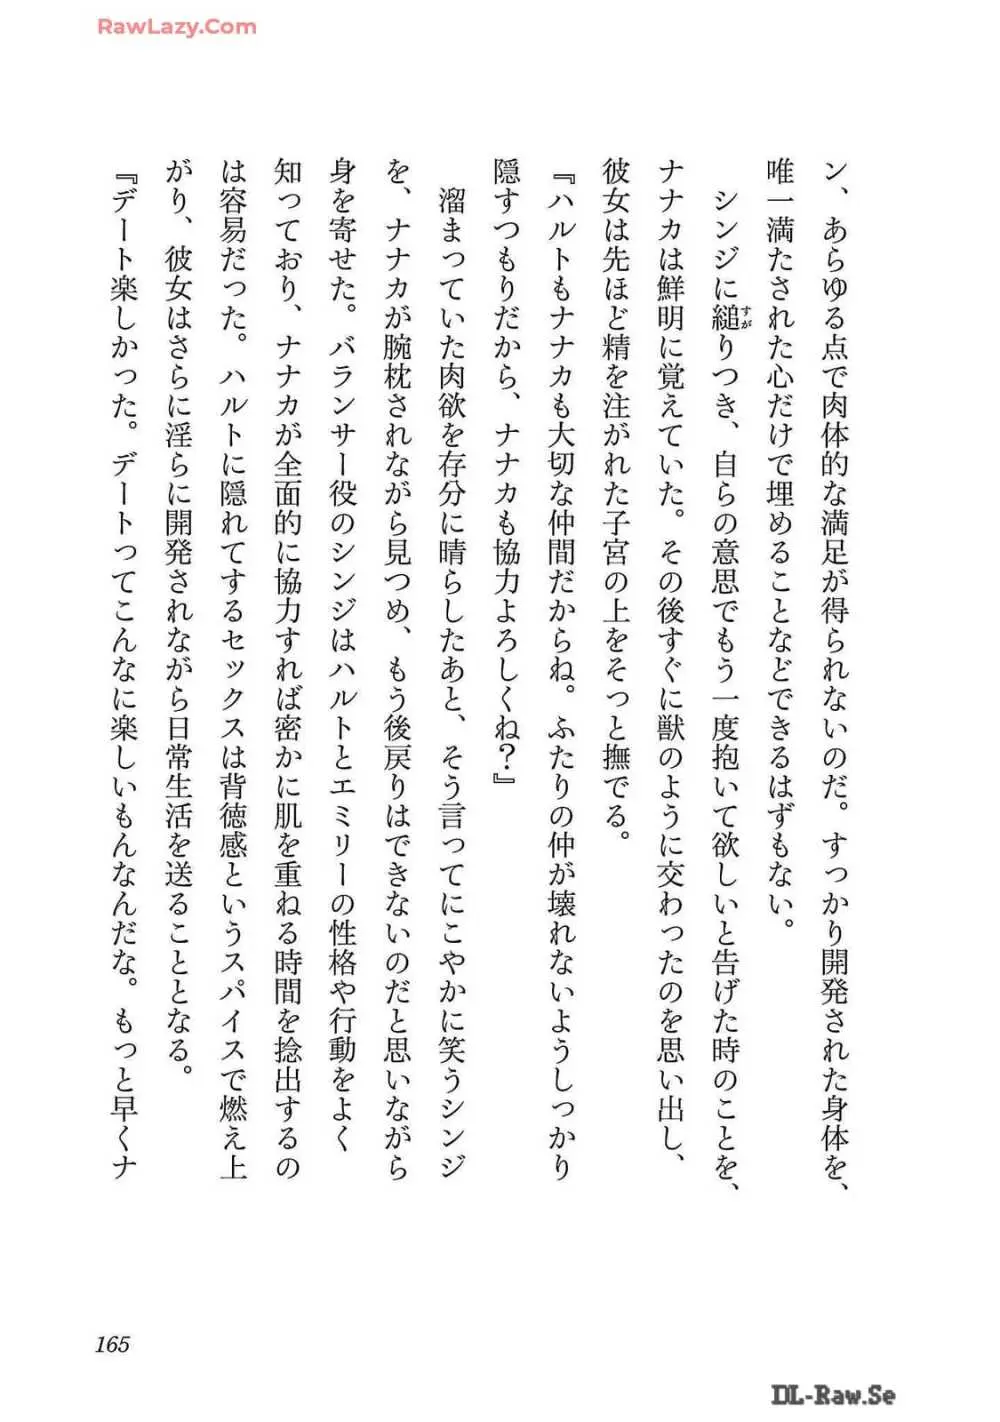 RawLazy.Com
ン、あらゆる点で肉体的な満足が得られないのだ。すっかり開発された身体を、
唯一満たされた心だけで埋めることなどできるはずもない。
シンジに縋りつき、自らの意思でもう一度抱いて欲しいと告げた時のことを、
すが
ナナカは鮮明に覚えていた。その後すぐに獣のように交わったのを思い出し、
彼女は先ほど精を注がれた子宮の上をそっと撫でる。
『ハルトもナナカも大切な仲間だからね。ふたりの仲が壊れないようしっかり
隠すつもりだから、ナナカも協力よろしくね？』
溜まっていた肉欲を存分に晴らしたあと、そう言ってにこやかに笑うシンジ
を、ナナカが腕枕されながら見つめ、もう後戻りはできないのだと思いながら
身を寄せた。バランサー役のシンジはハルトとエミリーの性格や行動をよく
知っており、ナナカが全面的に協力すれば密かに肌を重ねる時間を捻出するの
は容易だった。ハルトに隠れてするセックスは背徳感というスパイスで燃え上
がり、彼女はさらに淫らに開発されながら日常生活を送ることとなる。
『デート楽しかった。デートってこんなに楽しいもんなんだな。もっと早くナ
165
DL-Raw.Se